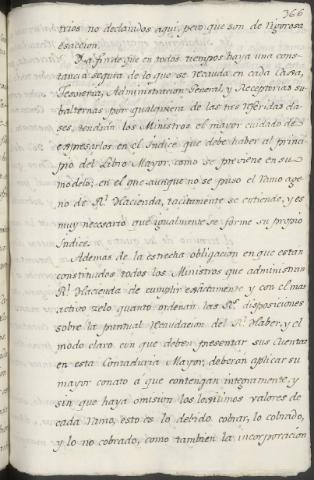 366
trios no declarados aquí, pero que son de rigorosa
esaccion.
A fin de que en todos tiempos haya una cons-
tancia segura de lo que se recauda en cada Caxa,
Tesorería, Administracion General, y Receptorias su-
balternas por qualquiera de las tres referidas cla-
ses, tendrán los Ministros el mayor cuidado de
expresarlos en el Indice que debe haber al princi-
pio del Libro Mayor, como se previene en su
modelo; en el que aunque no se puso el Ramo age-
no de Rl. Hacienda, tacitamente se entiende, y es
muy necesario que igualmente se forme su propio
Indice.
Ademas de la estrecha obligacion en que están
constituidos todos los Ministros que administran
Rl. Hacienda de cumplir exactamente y con el mas
activo zelo quanto ordenan las Rs. disposiciones
sobre la puntual recaudacion del Rl. Haber, y el
modo claro con que deben presentar sus Cuentas
en esta Contaduria Mayor, deberán aplicar su
mayor conato á que contengan integramente, y
sin que haya omision los legitimos valores de
cada Ramo, esto es lo debido cobrar, lo cobrado,
y lo no cobrado, como tambien la incorporacion